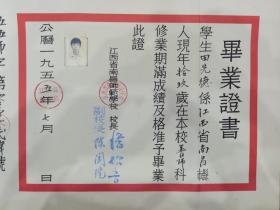 畢業證書
學生田先德係江西省南昌縣
人現年拾玖歲在本校普師科
修業期滿成績及格准予畢業
此證
江西省南昌師範學校 校長
副校長
公曆一九五五年七月 日